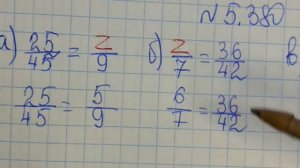 №5.380
а) 25/45 = z/9 б) z/7 = 36/42 в
25/45 = 5/9 6/7 = 36/42